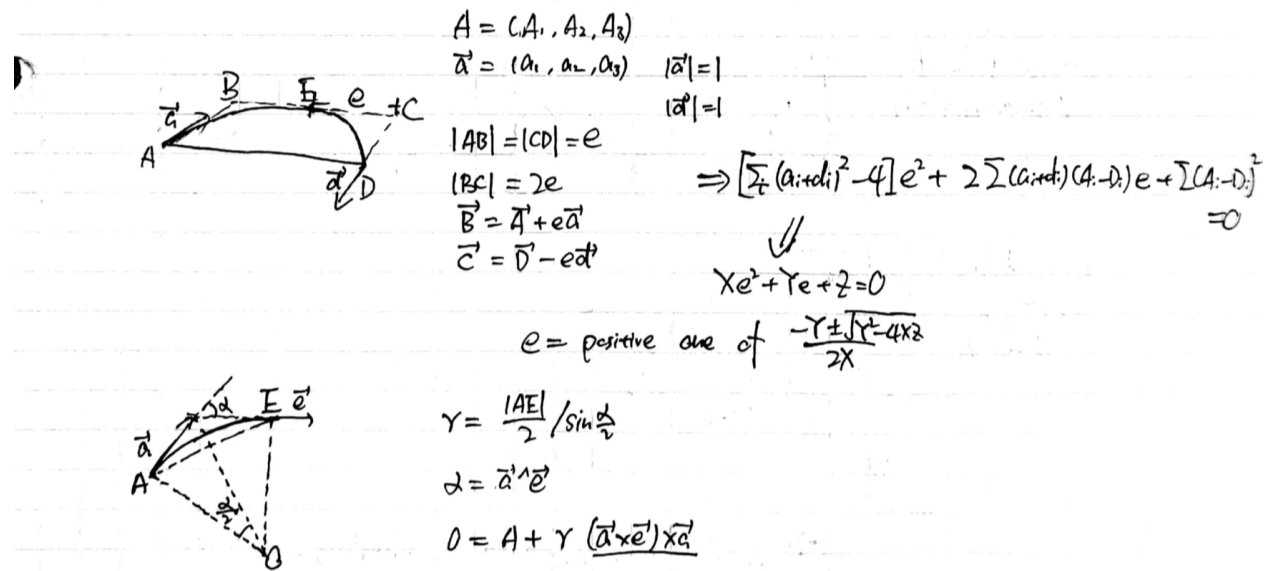 A = (A₁, A₂, A₃)
a⃗ = (a₁, a₂, a₃) |a⃗|=1
|d⃗|=1
B E e C
a⃗
A
d⃗ D
|AB|=|CD|=e
|BC|=2e
B⃗ = A⃗+ea⃗
C⃗ = D⃗-ed⃗
⇒ [Σᵢ(aᵢ+dᵢ)²-4]e²+ 2Σ(aᵢ+dᵢ)(Aᵢ-Dᵢ)e+Σ(Aᵢ-Dᵢ)²
=0
⇓
Xe²+Ye+Z=0
e= positive one of (-Y±√(Y²-4XZ))/(2X)
α E e⃗
a⃗
A
α/2
O
r= |AE|/2 /sin α/2
α= a⃗^e⃗
O = A+ r (a⃗×e⃗)×a⃗